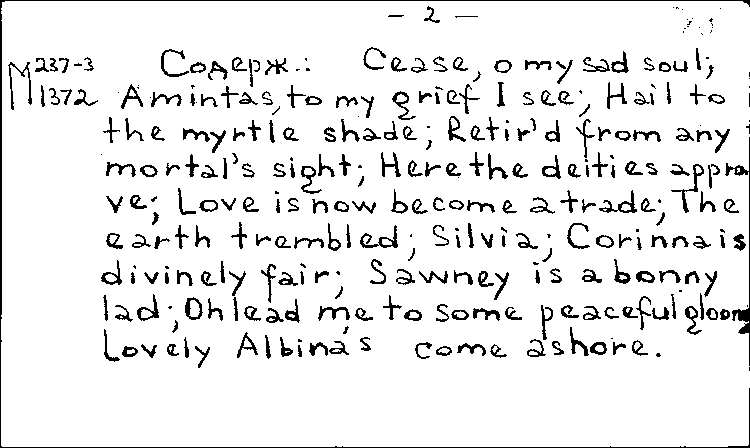 — 2 —
М 237-3 Содерж.: Cease, o my sad soul;
11372 Amintas, to my grief I see; Hail to
the myrtle shade; Retir'd from any
mortal's sight; Here the deities appro
ve; Love is now become a trade; The
earth trembled; Silvia; Corinna is
divinely fair; Sawney is a bonny
lad; Oh lead me to some peaceful gloom
Lovely Albina's come ashore.